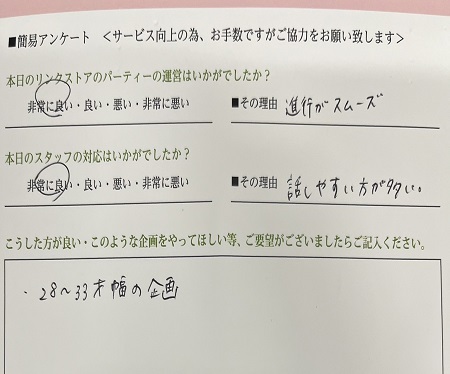 ■簡易アンケート <サービス向上の為、お手数ですがご協力をお願い致します>
本日のリンクストアのパーティーの運営はいかがでしたか?
非常に良い・良い・悪い・非常に悪い ■その理由 進行がスムーズ
本日のスタッフの対応はいかがでしたか?
非常に良い・良い・悪い・非常に悪い ■その理由 話しやすい方が多い。
こうした方が良い・このような企画をやってほしい等、ご要望がございましたらご記入ください。
・28〜33才幅の企画